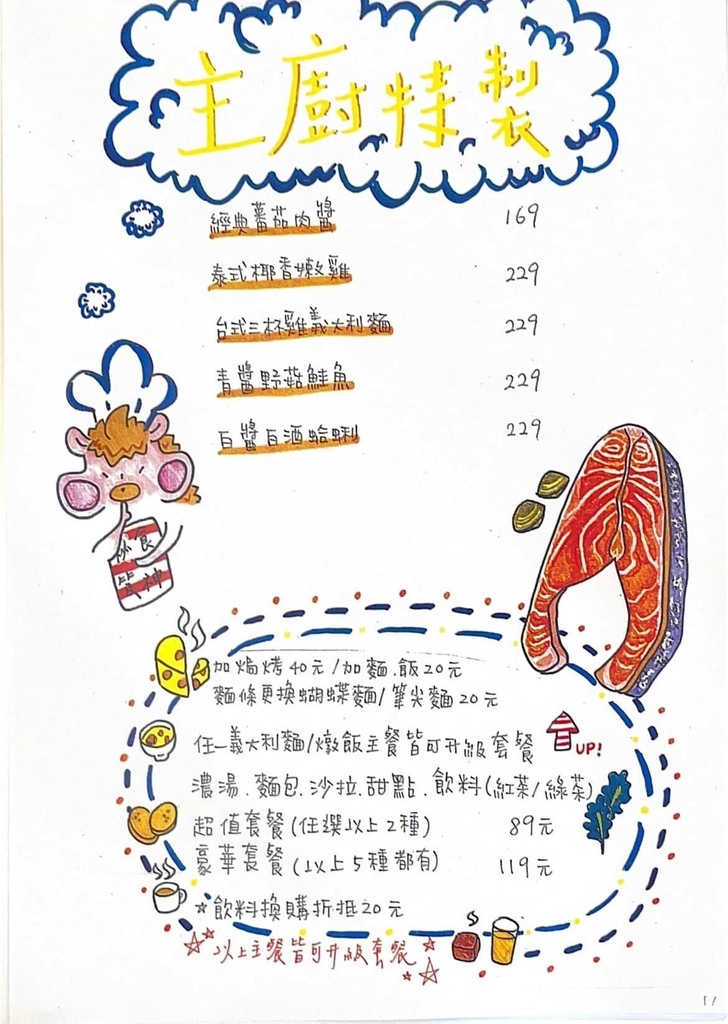 主廚特製
經典蕃茄肉醬 169
泰式椰香嫩雞 229
台式三杯雞義大利麵 229
青醬野菇鮭魚 229
白醬白酒蛤蜊 229
食神
加焗烤40元/加麵.飯20元
麵條更換蝴蝶麵/筆尖麵20元
任一義大利麵/燉飯主餐皆可升級套餐 UP!
濃湯.麵包.沙拉.甜點.飲料(紅茶/綠茶)
超值套餐(任選以上2種) 89元
豪華套餐(以上5種都有) 119元
☆飲料換購折抵20元
☆以上主餐皆可升級套餐☆